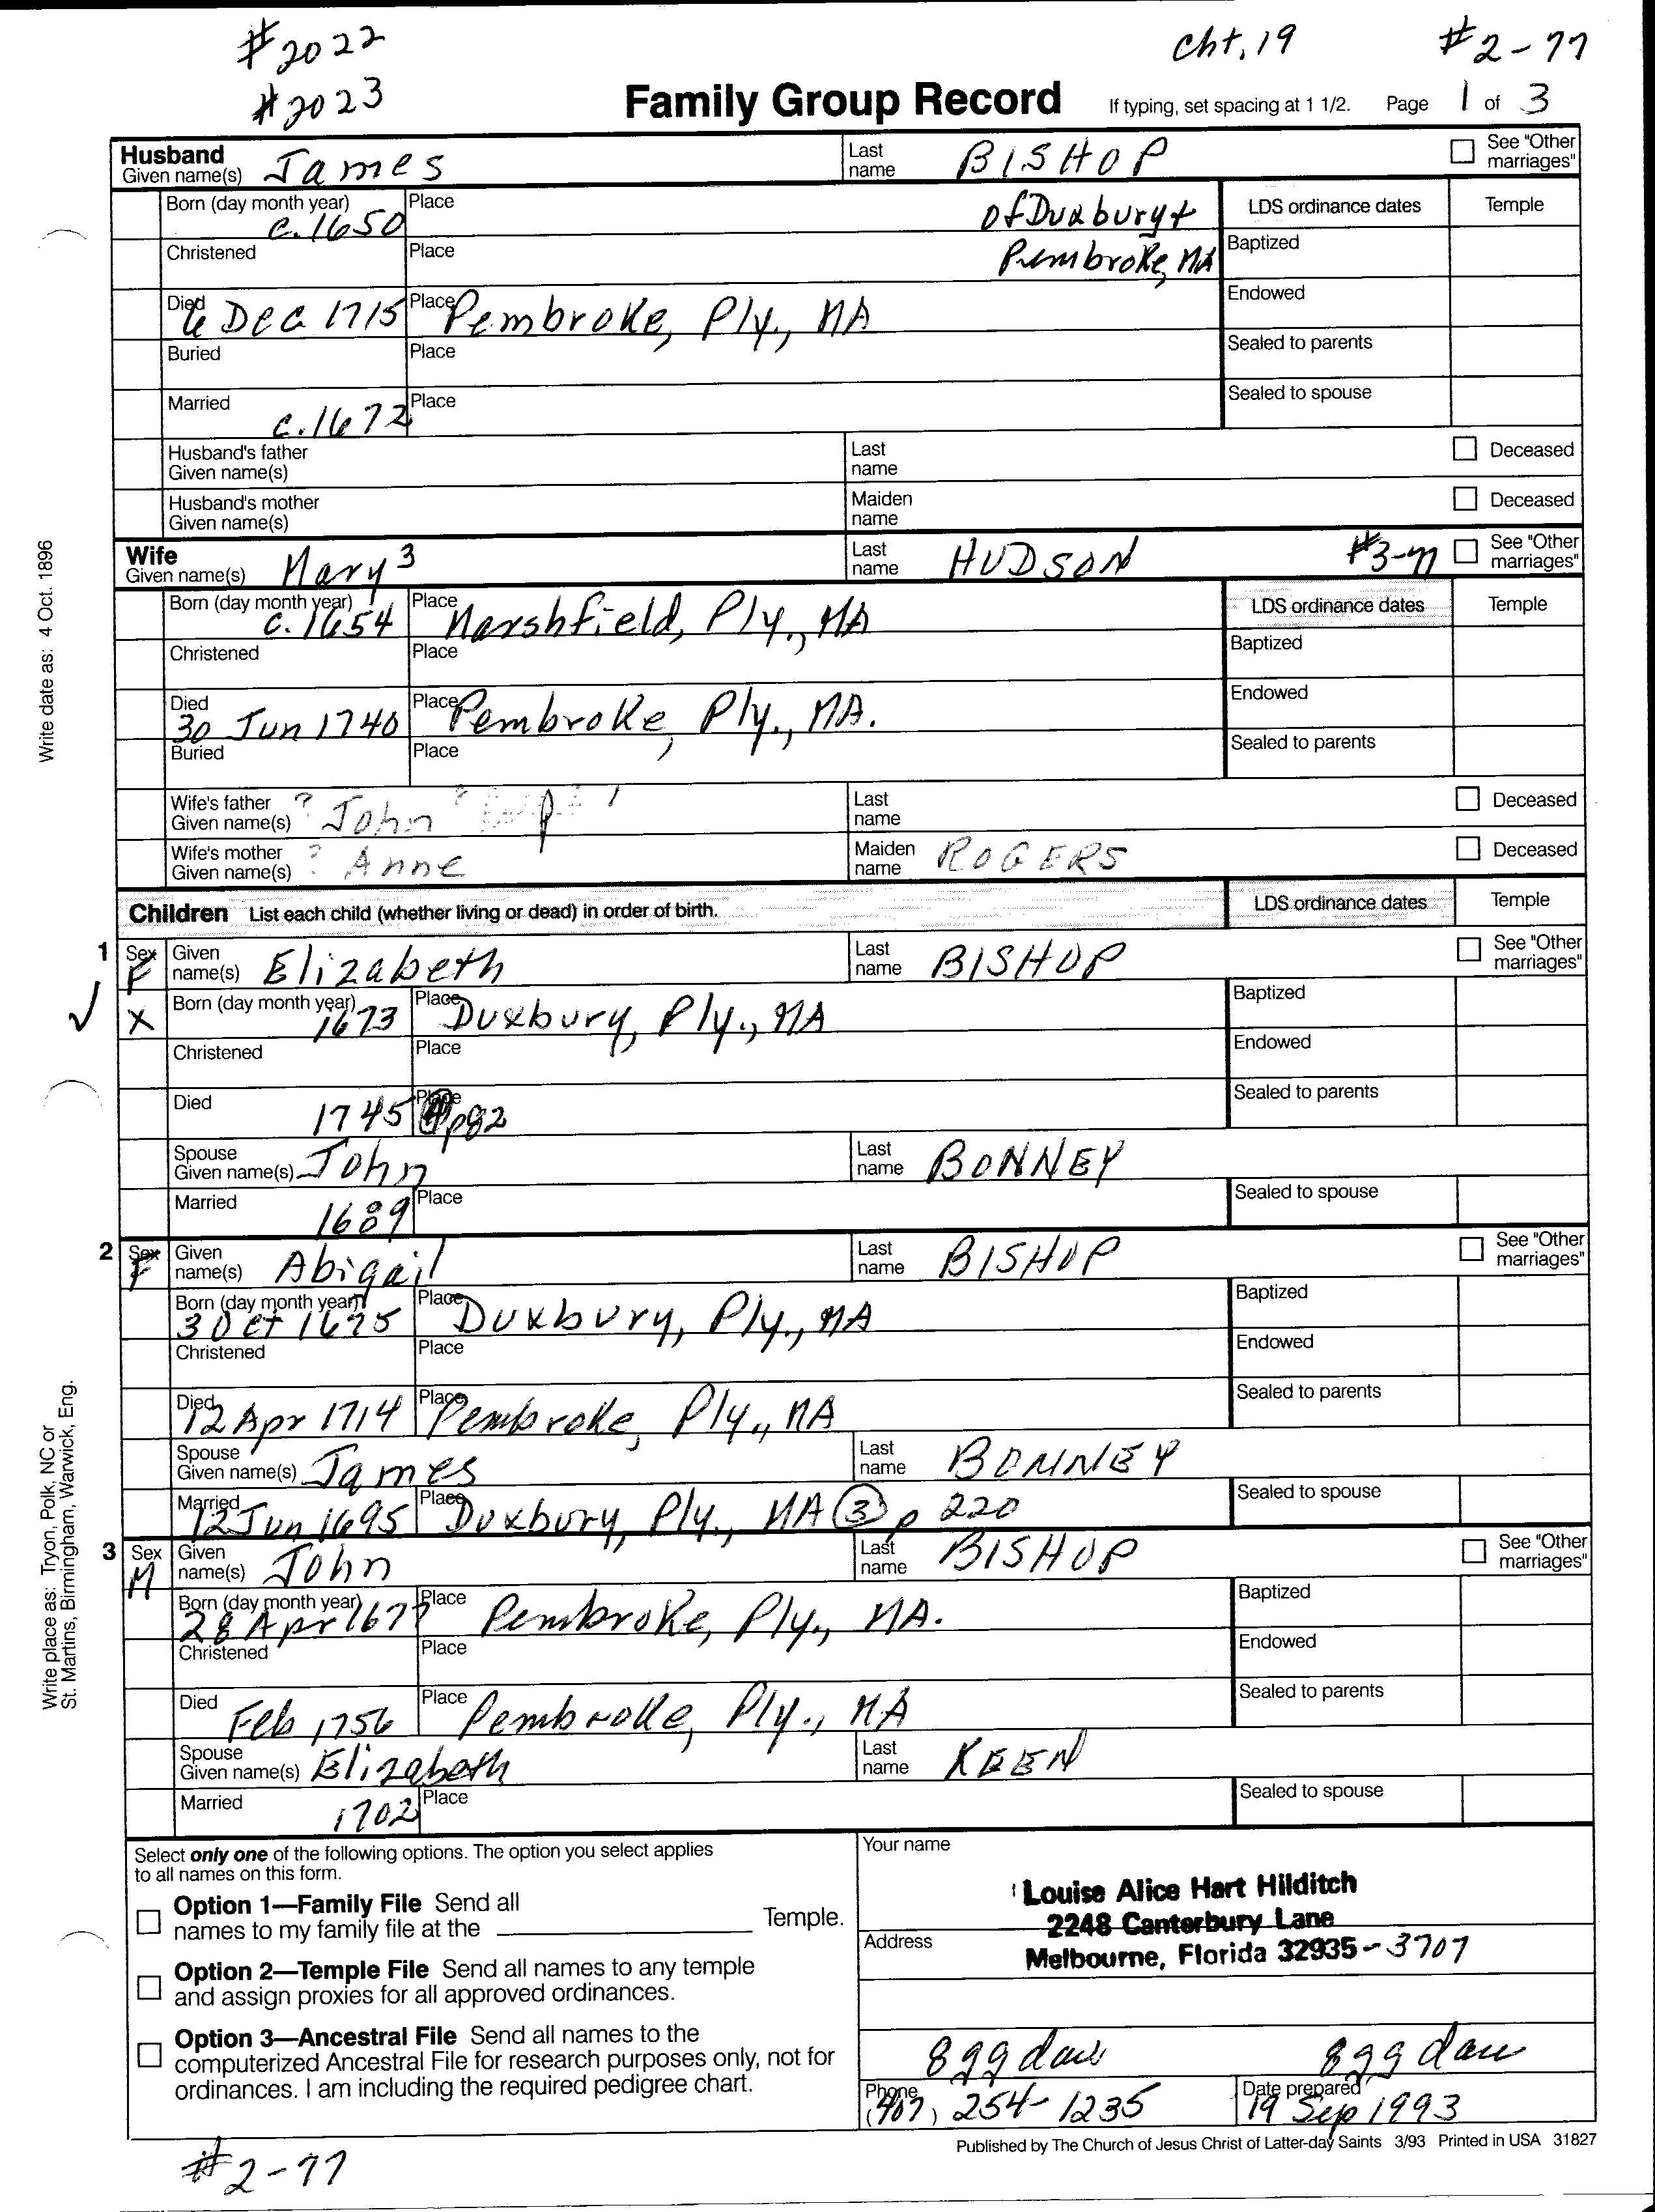 #2022 Cht. 19 #2-77
#2023 Family Group Record If typing, set spacing at 1 1/2. Page 1 of 3
Husband
Given name(s) James Last name BISHOP See "Other marriages"
Born (day month year) c. 1650 Place of Duxbury + LDS ordinance dates Temple
Christened Place Pembroke, MA Baptized
Died 6 Dec 1715 Place Pembroke, Ply., MA Endowed
Buried Place Sealed to parents
Married c. 1672 Place Sealed to spouse
Husband's father Given name(s) Last name Deceased
Husband's mother Given name(s) Maiden name Deceased
Wife
Given name(s) Mary 3 Last name HUDSON #3-77 See "Other marriages"
Born (day month year) c. 1654 Place Marshfield, Ply., MA LDS ordinance dates Temple
Christened Place Baptized
Died 30 Jun 1740 Place Pembroke, Ply., MA. Endowed
Buried Place Sealed to parents
Wife's father Given name(s) ? John ? Last name Deceased
Wife's mother Given name(s) ? Anne Maiden name ROGERS Deceased
Children List each child (whether living or dead) in order of birth. LDS ordinance dates Temple
1 Sex F Given name(s) Elizabeth Last name BISHOP See "Other marriages"
✓ X Born (day month year) 1673 Place Duxbury, Ply., MA Baptized
Christened Place Endowed
Died 1745 Place p82 Sealed to parents
Spouse Given name(s) John Last name BONNEY
Married 1689 Place Sealed to spouse
2 Sex F Given name(s) Abigail Last name BISHOP See "Other marriages"
Born (day month year) 3 Oct 1675 Place Duxbury, Ply., MA Baptized
Christened Place Endowed
Died 12 Apr 1714 Place Pembroke, Ply., MA Sealed to parents
Spouse Given name(s) James Last name BONNEY
Married 12 Jun 1695 Place Duxbury, Ply., MA 3 p 220 Sealed to spouse
3 Sex M Given name(s) John Last name BISHOP See "Other marriages"
Born (day month year) 28 Apr 1677 Place Pembroke, Ply., MA. Baptized
Christened Place Endowed
Died Feb 1756 Place Pembroke, Ply., MA Sealed to parents
Spouse Given name(s) Elizabeth Last name KEEN
Married 1702 Place Sealed to spouse
Select only one of the following options. The option you select applies
to all names on this form.
Option 1—Family File Send all
names to my family file at the Temple.
Option 2—Temple File Send all names to any temple
and assign proxies for all approved ordinances.
Option 3—Ancestral File Send all names to the
computerized Ancestral File for research purposes only, not for
ordinances. I am including the required pedigree chart.
Your name
Louise Alice Hart Hilditch
2248 Canterbury Lane
Address
Melbourne, Florida 32935-3707
8gg dau 8gg dau
Phone (407) 254-1235 Date prepared 19 Sep 1993
Published by The Church of Jesus Christ of Latter-day Saints 3/93 Printed in USA 31827
#2-77
Write date as: 4 Oct. 1896
Write place as: Tryon, Polk, NC or
St. Martins, Birmingham, Warwick, Eng.